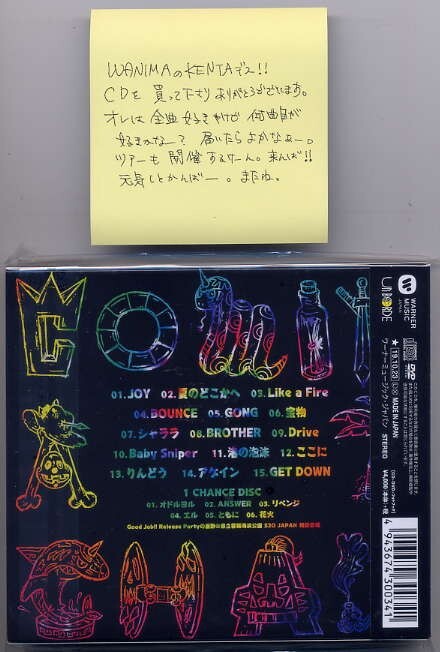 WANIMAのKENTAデス!!
CDを 買って下さりありがとうございます。
オレは 全曲 好きやけど 何曲目が
好きかなー? 届いたらよかなぁー。
ツアーも 開催するけーん。来んば!!
元気しとかんばー。またね。
COMINATCHA
WARNER MUSIC JAPAN
unBORDE
DVD
★ '19.10.23 MADE IN JAPAN
ワーナーミュージック・ジャパン STEREO
¥4,000+税
4 943674 300341
01.JOY 02.夏のどこかへ 03.Like a Fire
04.BOUNCE 05.GONG 06.宝物
07.シャララ 08.BROTHER 09.Drive
10.Baby Sniper 11.渚の泡沫 12.ここに
13.りんどう 14.アゲイン 15.GET DOWN
1 CHANCE DISC
01.オドルヨル 02.ANSWER 03.リベンジ
04.エル 05.ともに 06.花火
Good Job!! Release Party